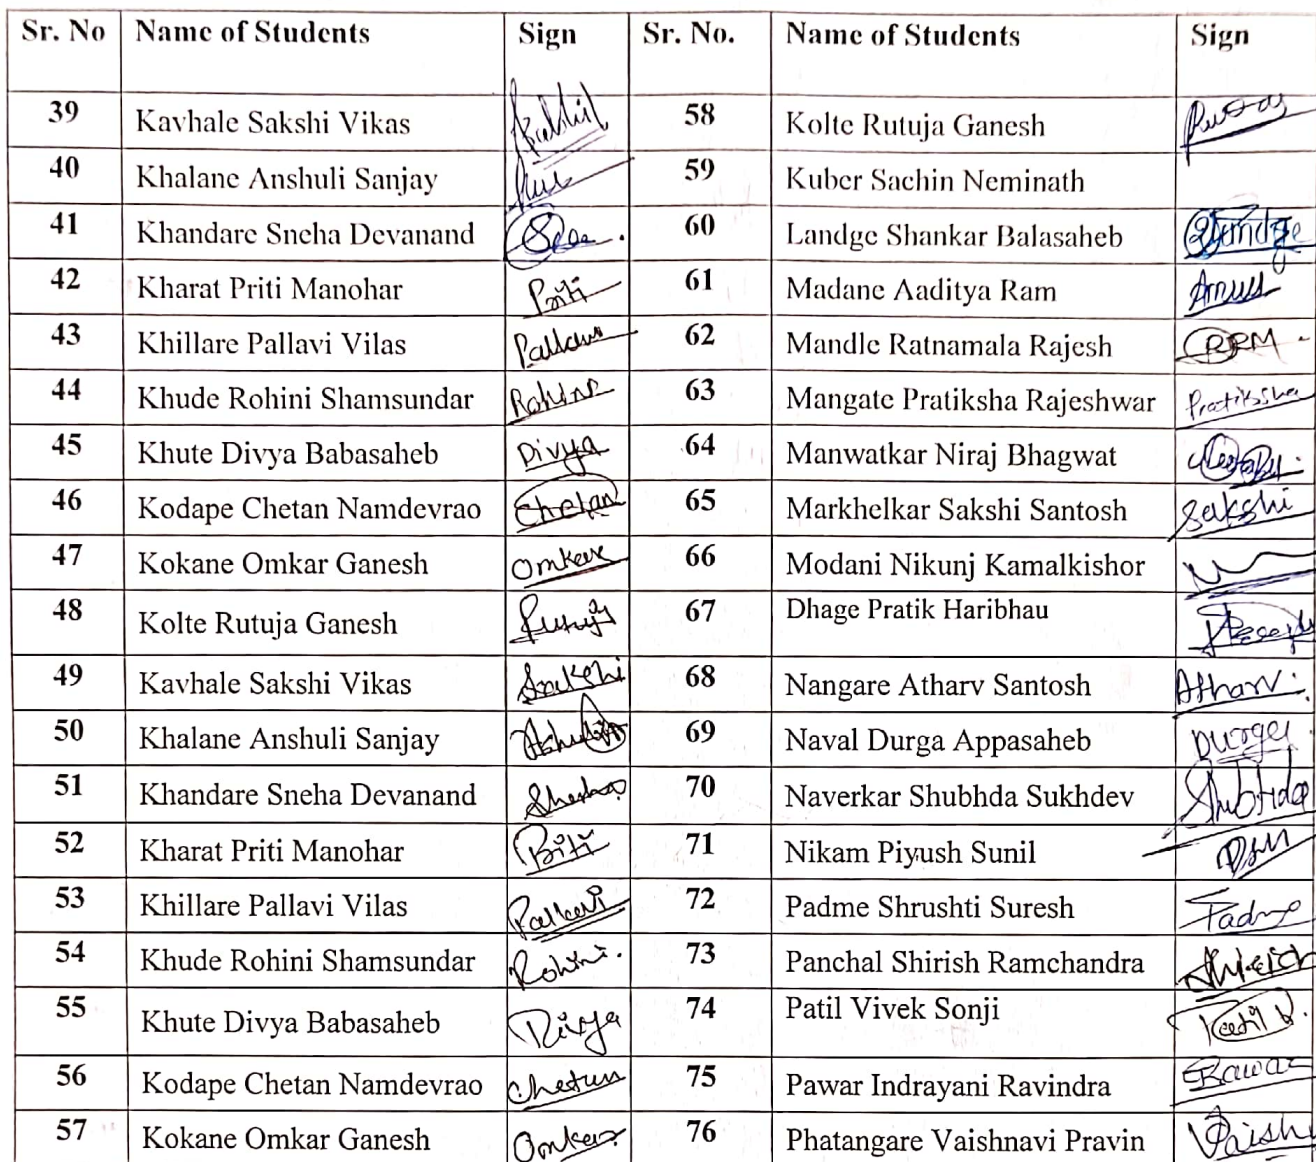 Sr. No Name of Students Sign Sr. No. Name of Students Sign
39 Kavhale Sakshi Vikas 58 Kolte Rutuja Ganesh
40 Khalane Anshuli Sanjay 59 Kuber Sachin Neminath
41 Khandare Sneha Devanand 60 Landge Shankar Balasaheb
42 Kharat Priti Manohar Priti 61 Madane Aaditya Ram
43 Khillare Pallavi Vilas 62 Mandle Ratnamala Rajesh RRM
44 Khude Rohini Shamsundar Rohini 63 Mangate Pratiksha Rajeshwar Pratiksha
45 Khute Divya Babasaheb Divya 64 Manwatkar Niraj Bhagwat
46 Kodape Chetan Namdevrao Chetan 65 Markhelkar Sakshi Santosh Sakshi
47 Kokane Omkar Ganesh Omkar 66 Modani Nikunj Kamalkishor
48 Kolte Rutuja Ganesh 67 Dhage Pratik Haribhau
49 Kavhale Sakshi Vikas Sakshi 68 Nangare Atharv Santosh Atharv
50 Khalane Anshuli Sanjay 69 Naval Durga Appasaheb Durga
51 Khandare Sneha Devanand 70 Naverkar Shubhda Sukhdev
52 Kharat Priti Manohar Priti 71 Nikam Piyush Sunil
53 Khillare Pallavi Vilas Pallavi 72 Padme Shrushti Suresh Padme
54 Khude Rohini Shamsundar Rohini. 73 Panchal Shirish Ramchandra
55 Khute Divya Babasaheb Divya 74 Patil Vivek Sonji Patil V.
56 Kodape Chetan Namdevrao Chetan 75 Pawar Indrayani Ravindra
57 Kokane Omkar Ganesh Omkar 76 Phatangare Vaishnavi Pravin Vaish